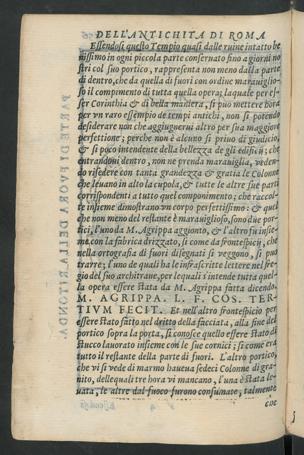 DELL'ANTICHITA DI ROMA
Essendosi questo Tempio quasi dalle ruine intatto be
nissimo in ogni piccola parte conservato sino a giorni no
stri col suo portico, rappresenta non meno dalla parte
di dentro, che da quella di fuori con ordine maraviglio-
so il compimento di tutta quella opera; la quale per es-
ser Corinthia & di bella maniera, si può mettere hora
per un raro essempio de tempi antichi, non si potendo
desiderare non che aggiugnervi altro per sua maggiore
perfettione; perche non è alcuno sì privo di giudicio,
& sì poco intendente della bellezza de gli edificii; che
entrandovi dentro, non ne prenda maraviglia, veden-
do risedere con tanta grandezza & gratia le Colonne
che levano in alto la cupola, & tutte le altre sue parti
corrispondenti a tutto quel componimento; che raccol-
te insieme dimostrano un corpo perfettissimo: & quel
che non meno del restante è maraviglioso, sono due por-
tici, l'uno da M. Agrippa aggionto, & l'altro fu insie-
me con la fabrica drizzato, sì come da frontespicij, che
nella ortografia di fuori disegnati si veggono, si può
trarre; l'uno de quali ha le infrascritte lettere nel fre-
gio del suo architrave, per le quali s'intende tutta quel-
la opera essere stata da M. Agrippa fatta dicendo.
M. AGRIPPA. L. F. COS. TER-
TIVM FECIT. Et nell'altro frontespicio per
essere stato fatto nel dritto della facciata, alla fine del
portico sopra la porta, si conosce quello essere stato di
stucco lavorato insieme con le sue cornici; sì come era
tutto il restante della parte di fuori. L'altro portico,
che vi si vede di marmo haveva sedeci Colonne di gra-
nito, delle quali tre hora vi mancano, l'una è stata le-
vata, le altre dal fuoco furono consumate, talmente
che